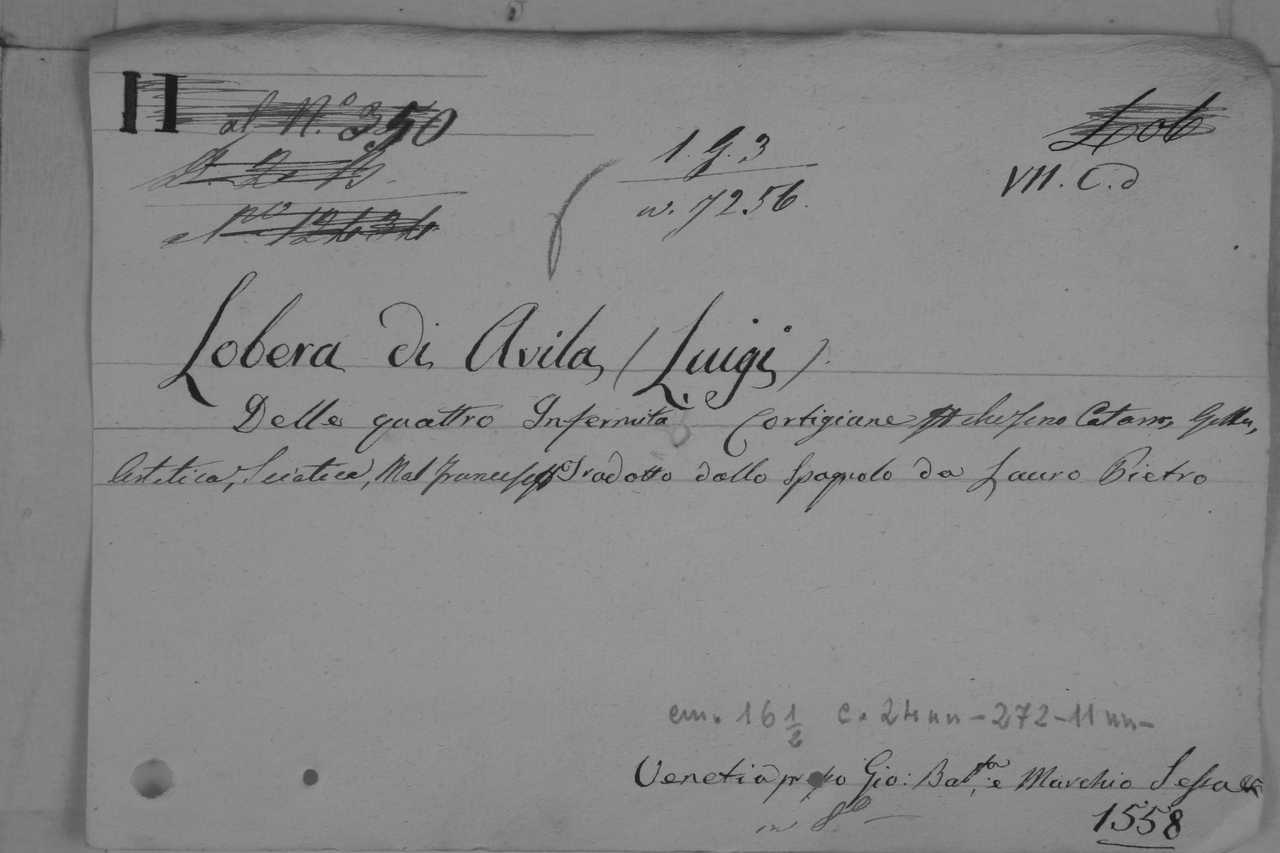 II al N.º 350
1. G. 3
Lob
VII. C. d
n. 7256.
Nº 12434
Lobera di Avila (Luigi).
Delle quattro Infermità Cortigiane che sono Catarro, Gotta,
Artetica, Sciatica, Mal francese Tradotto dallo Spagnolo da Lauro Pietro
cm. 16 1/2 c. 24 nn - 272 - 11 nn -
Venetia presso Gio: Batta, e Marchio Sessa
in 8º
1558